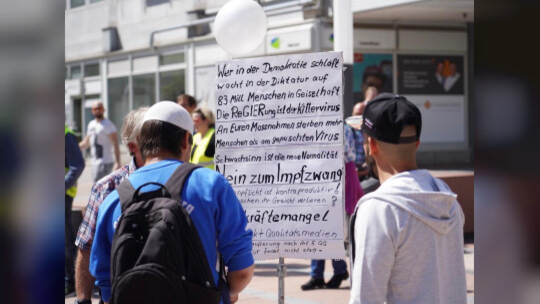 Wer in der Demokratie schläft
wacht in der Diktatur auf
83 Mill. Menschen in Geiselhaft
Die ReGIERung ist der Killervirus
An Euren Massnahmen sterben mehr
Menschen als am gepuschten Virus
Schwachsinn ist die neue Normalität
Nein zum Impfzwang
pflicht ist kontraproduktiv
ihr Gesicht verlieren?
kräftemangel
kt Qualitätsmedien